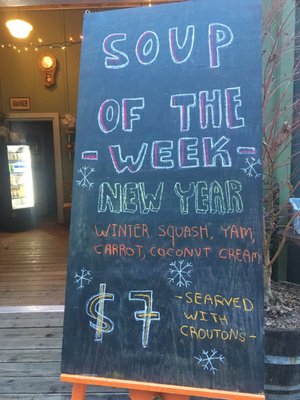 SOUP
OF THE
-WEEK-
NEW YEAR
WINTER SQUASH, YAM,
CARROT, COCONUT CREAM
$7
-SEARVED
WITH
CROUTONS-